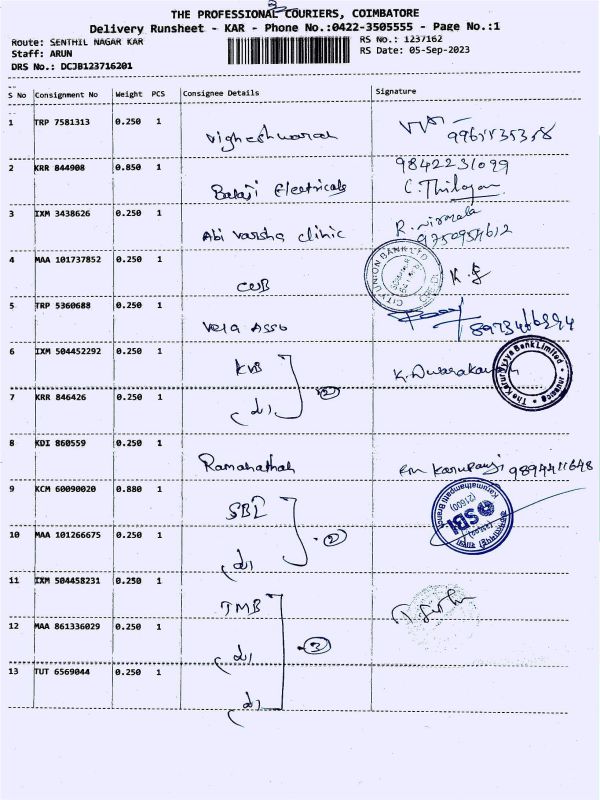 3
THE PROFESSIONAL COURIERS, COIMBATORE
Delivery Runsheet - KAR - Phone No.:0422-3505555 - Page No.:1
Route: SENTHIL NAGAR KAR RS No.: 1237162
Staff: ARUN RS Date: 05-Sep-2023
DRS No.: DCJB123716201
S No Consignment No Weight PCS Consignee Details Signature
1 TRP 7581313 0.250 1
Vigheshwarah
2 KRR 844908 0.850 1 9842231099
Balaji Electricals C. Thilagan
3 IXM 3438626 0.250 1 R. Nirmala
Abi Varsha clinic 9750954612
4 MAA 101737852 0.250 1 CITY UNION BANK LTD
CUB
5 TRP 5360688 0.250 1
Vela Asso
6 IXM 504452292 0.250 1 The Karur Vysya Bank Limited
KVB
7 KRR 846426 0.250 1
(2)
8 KDI 860559 0.250 1
Ramanathah 9894411648
9 KCM 60090020 0.880 1
SBI SBI
10 MAA 101266675 0.250 1
(2)
11 IXM 504458231 0.250 1
TMB
12 MAA 861336029 0.250 1
(3)
13 TUT 6569044 0.250 1